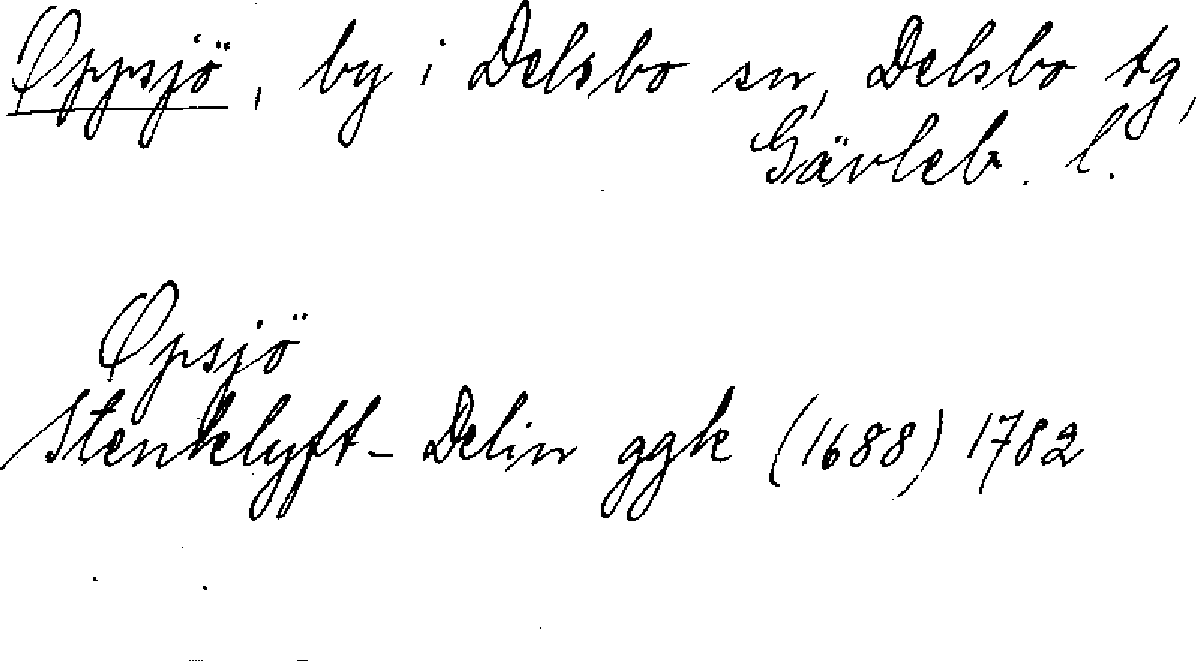 Oppsjö, by i Delsbo sn, Delsbo tg,
Gävleb. l.
Opsjö
Stenklyft-Delin ggk (1688) 1782